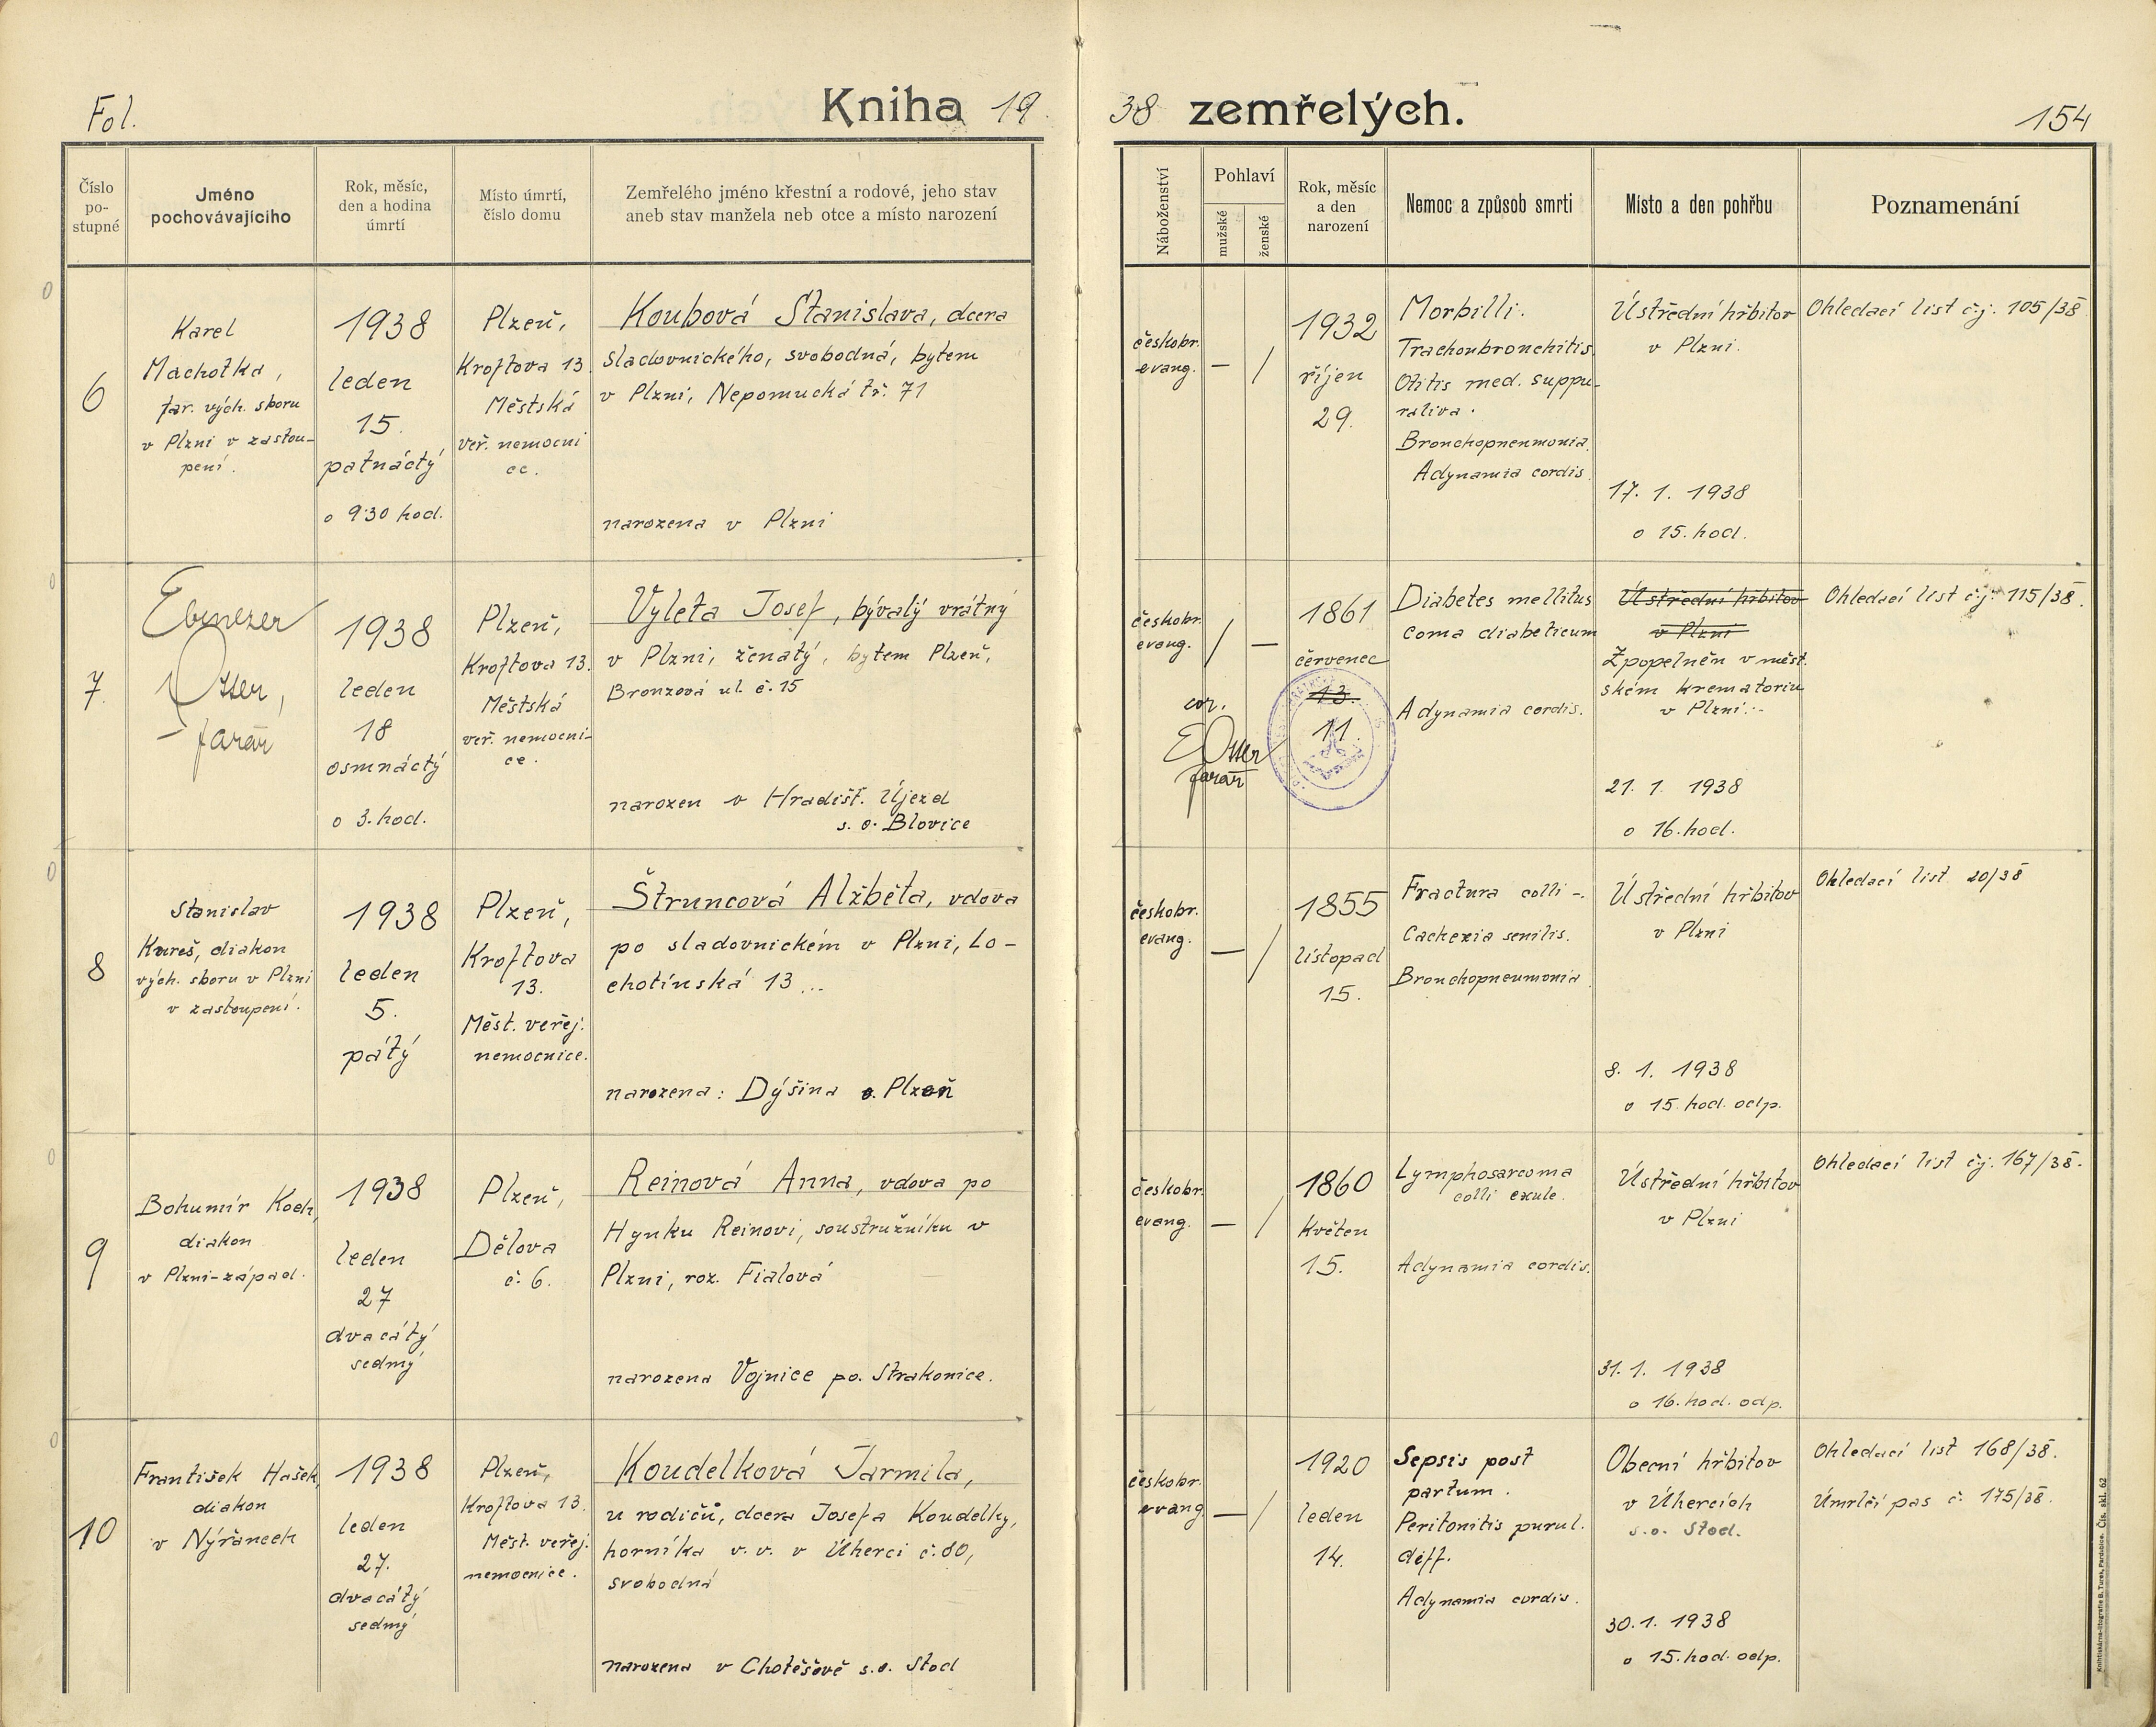 Fol.
Kniha 19
38 zemřelých.
154
Číslo
po-
stupné
Jméno
pochovávajícího
Rok, měsíc,
den a hodina
úmrtí
Místo úmrtí,
číslo domu
Zemřelého jméno křestní a rodové, jeho stav
aneb stav manžela neb otce a místo narození
Náboženství
Pohlaví
mužské
ženské
Rok, měsíc
a den
narození
Nemoc a způsob smrti
Místo a den pohřbu
Poznamenání
6
Karel
Machotka,
far. vých. sboru
v Plzni v zastou-
pení.
1938
leden
15.
patnáctý
o 9:30 hod.
Plzeň,
Kroftova 13.
Městská
veř. nemocni
ce.
Koubová Stanislava, dcera
sladovnického, svobodná, bytem
v Plzni, Nepomucká tř. 71
narozena v Plzni
českobr.
evang.
—
/
1932
říjen
29.
Morbilli.
Trachoubronchitis.
Otitis med. suppu-
rativa.
Bronchopneumonia.
Adynamia cordis.
Ústřední hřbitov
v Plzni.
17. 1. 1938
o 15. hod.
Ohledací list č.j. 105/38
7.
Ebenezer
Otter,
farář
1938
leden
18
osmnáctý
o 3. hod.
Plzeň,
Kroftova 13.
Městská
veř. nemocni-
ce.
Vyleta Josef, bývalý vrátný
v Plzni, ženatý, bytem Plzeň,
Bronzová ul. č. 15
narozen v Hradišť. Újezd
s. o. Blovice
českobr.
evang.
/
—
cor.
E Otter
farář
1861
červenec
13.
11.
Diabetes mellitus
coma diabeticum
Adynamia cordis.
Ústřední hřbitov
v Plzni
Zpopelněn v měst.
ském krematoriu
v Plzni.
21. 1. 1938
o 16. hod.
Ohledací list č.j. 115/38.
8
Stanislav
Kareš, diakon
vých. sboru v Plzni
v zastoupení.
1938
leden
5.
pátý
Plzeň,
Kroftova
13.
Měst. veřej.
nemocnice.
Štruncová Alžběta, vdova
po sladovnickém v Plzni, Lo-
chotínská 13...
narozena: Dýšina o. Plzeň
českobr.
evang.
—
/
1855
listopad
15.
Fractura colli -.
Cachexia senilis.
Bronchopneumonia.
Ústřední hřbitov
v Plzni
8. 1. 1938
o 15. hod. odp.
Ohledací list 20/38
9
Bohumír Koch,
diakon
v Plzni-západ.
1938
leden
27
dvacátý
sedmý
Plzeň,
Dělova
č. 6.
Reinová Anna, vdova po
Hynku Reinovi, soustružníku v
Plzni, roz. Fialová
narozena Vojnice po. Strakonice.
českobr.
evang.
—
/
1860
Květen
15.
Lymphosarcoma
colli exule.
Adynamia cordis.
Ústřední hřbitov
v Plzni
31. 1. 1938
o 16. hod. odp.
Ohledací list čj. 167/38.
10
František Hašek,
diakon
v Nýřanech
1938
leden
27.
dvacátý
sedmý
Plzeň,
Kroftova 13.
Měst. veřej.
nemocnice.
Koudelková Jarmila,
u rodičů, dcera Josefa Koudelky,
horníka v. v. v Úherci č. 80,
svobodná
narozena v Chotěšově s.o. Stod
českobr.
evang.
—
/
1920
leden
14.
Sepsis post
partum.
Peritonitis purul.
diff.
Adynamia cordis.
Obecní hřbitov
v Úhercích
s.o. Stod.
30. 1. 1938
o 15. hod. odp.
Ohledací list 168/38.
Úmrlčí pas č. 175/38.
Knihtiskárna-litografie B. Tuma, Pardubice. Čís. skl. 62